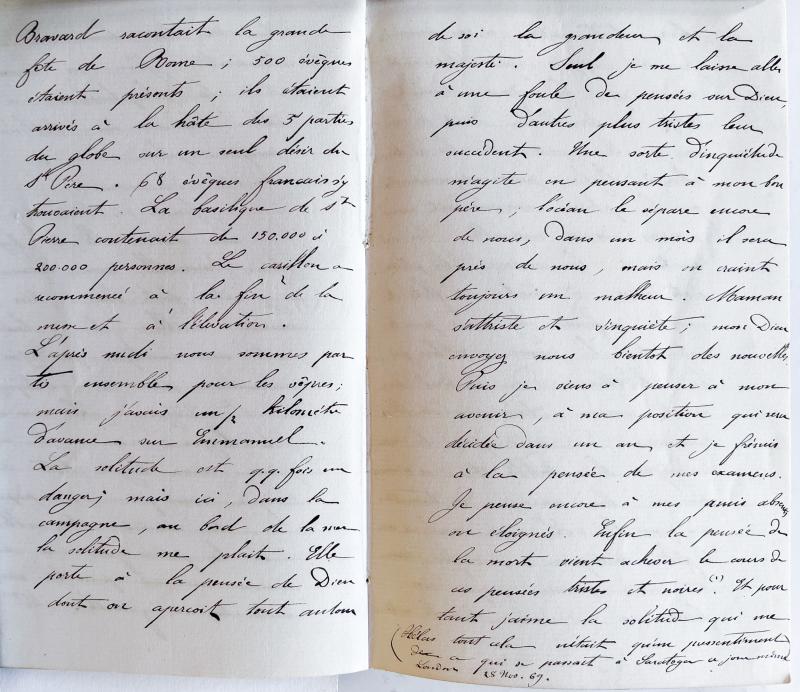 Bravard racontait la grande
fête de Rome ; 500 évêques
étaient présents ; ils étaient
arrivés à la hâte des 5 parties
du globe sur un seul désir du
St Père. 68 évêques français s'y
trouvaient. La basilique de St
Pierre contenait de 150.000 à
200.000 personnes. Le carillon a
recommencé à la fin de la
messe et à l'élévation.
L'après midi nous sommes par
tis ensemble pour les vêpres ;
mais j'avais un kilomètre
d'avance sur Emmanuel.
La solitude est q.q. fois un
danger ; mais ici, dans la
campagne, au bord de la mer
la solitude me plait. Elle
porte à la pensée de Dieu
dont on aperçoit tout autour
de soi la grandeur et la
majesté. Seul je me laisse aller
à une foule de pensées sur Dieu,
puis d'autres plus tristes leur
succèdent. Une sorte d'inquiétude
m'agite en pensant à mon bon
père ; l'océan le sépare encore
de nous, dans un mois il sera
près de nous, mais on craint
toujours un malheur. Maman
s'attriste et s'inquiète ; mon Dieu
envoyez nous bientot des nouvelles.
Puis je viens à penser à mon
avenir, à ma position qui sera
décidée dans un an, et je frémis
à la pensée de mes examens.
Je pense encore à mes amis absents
ou éloignés. Enfin la pensée de
la mort vient achever le cours de
ces pensées tristes et noires (1). Et pour
tant j'aime la solitude qui me
(Hélas tout cela n'était qu'un pressentiment
de ce qui se passait à Saratoga ce jour même
Londres 28 Nov. 69.